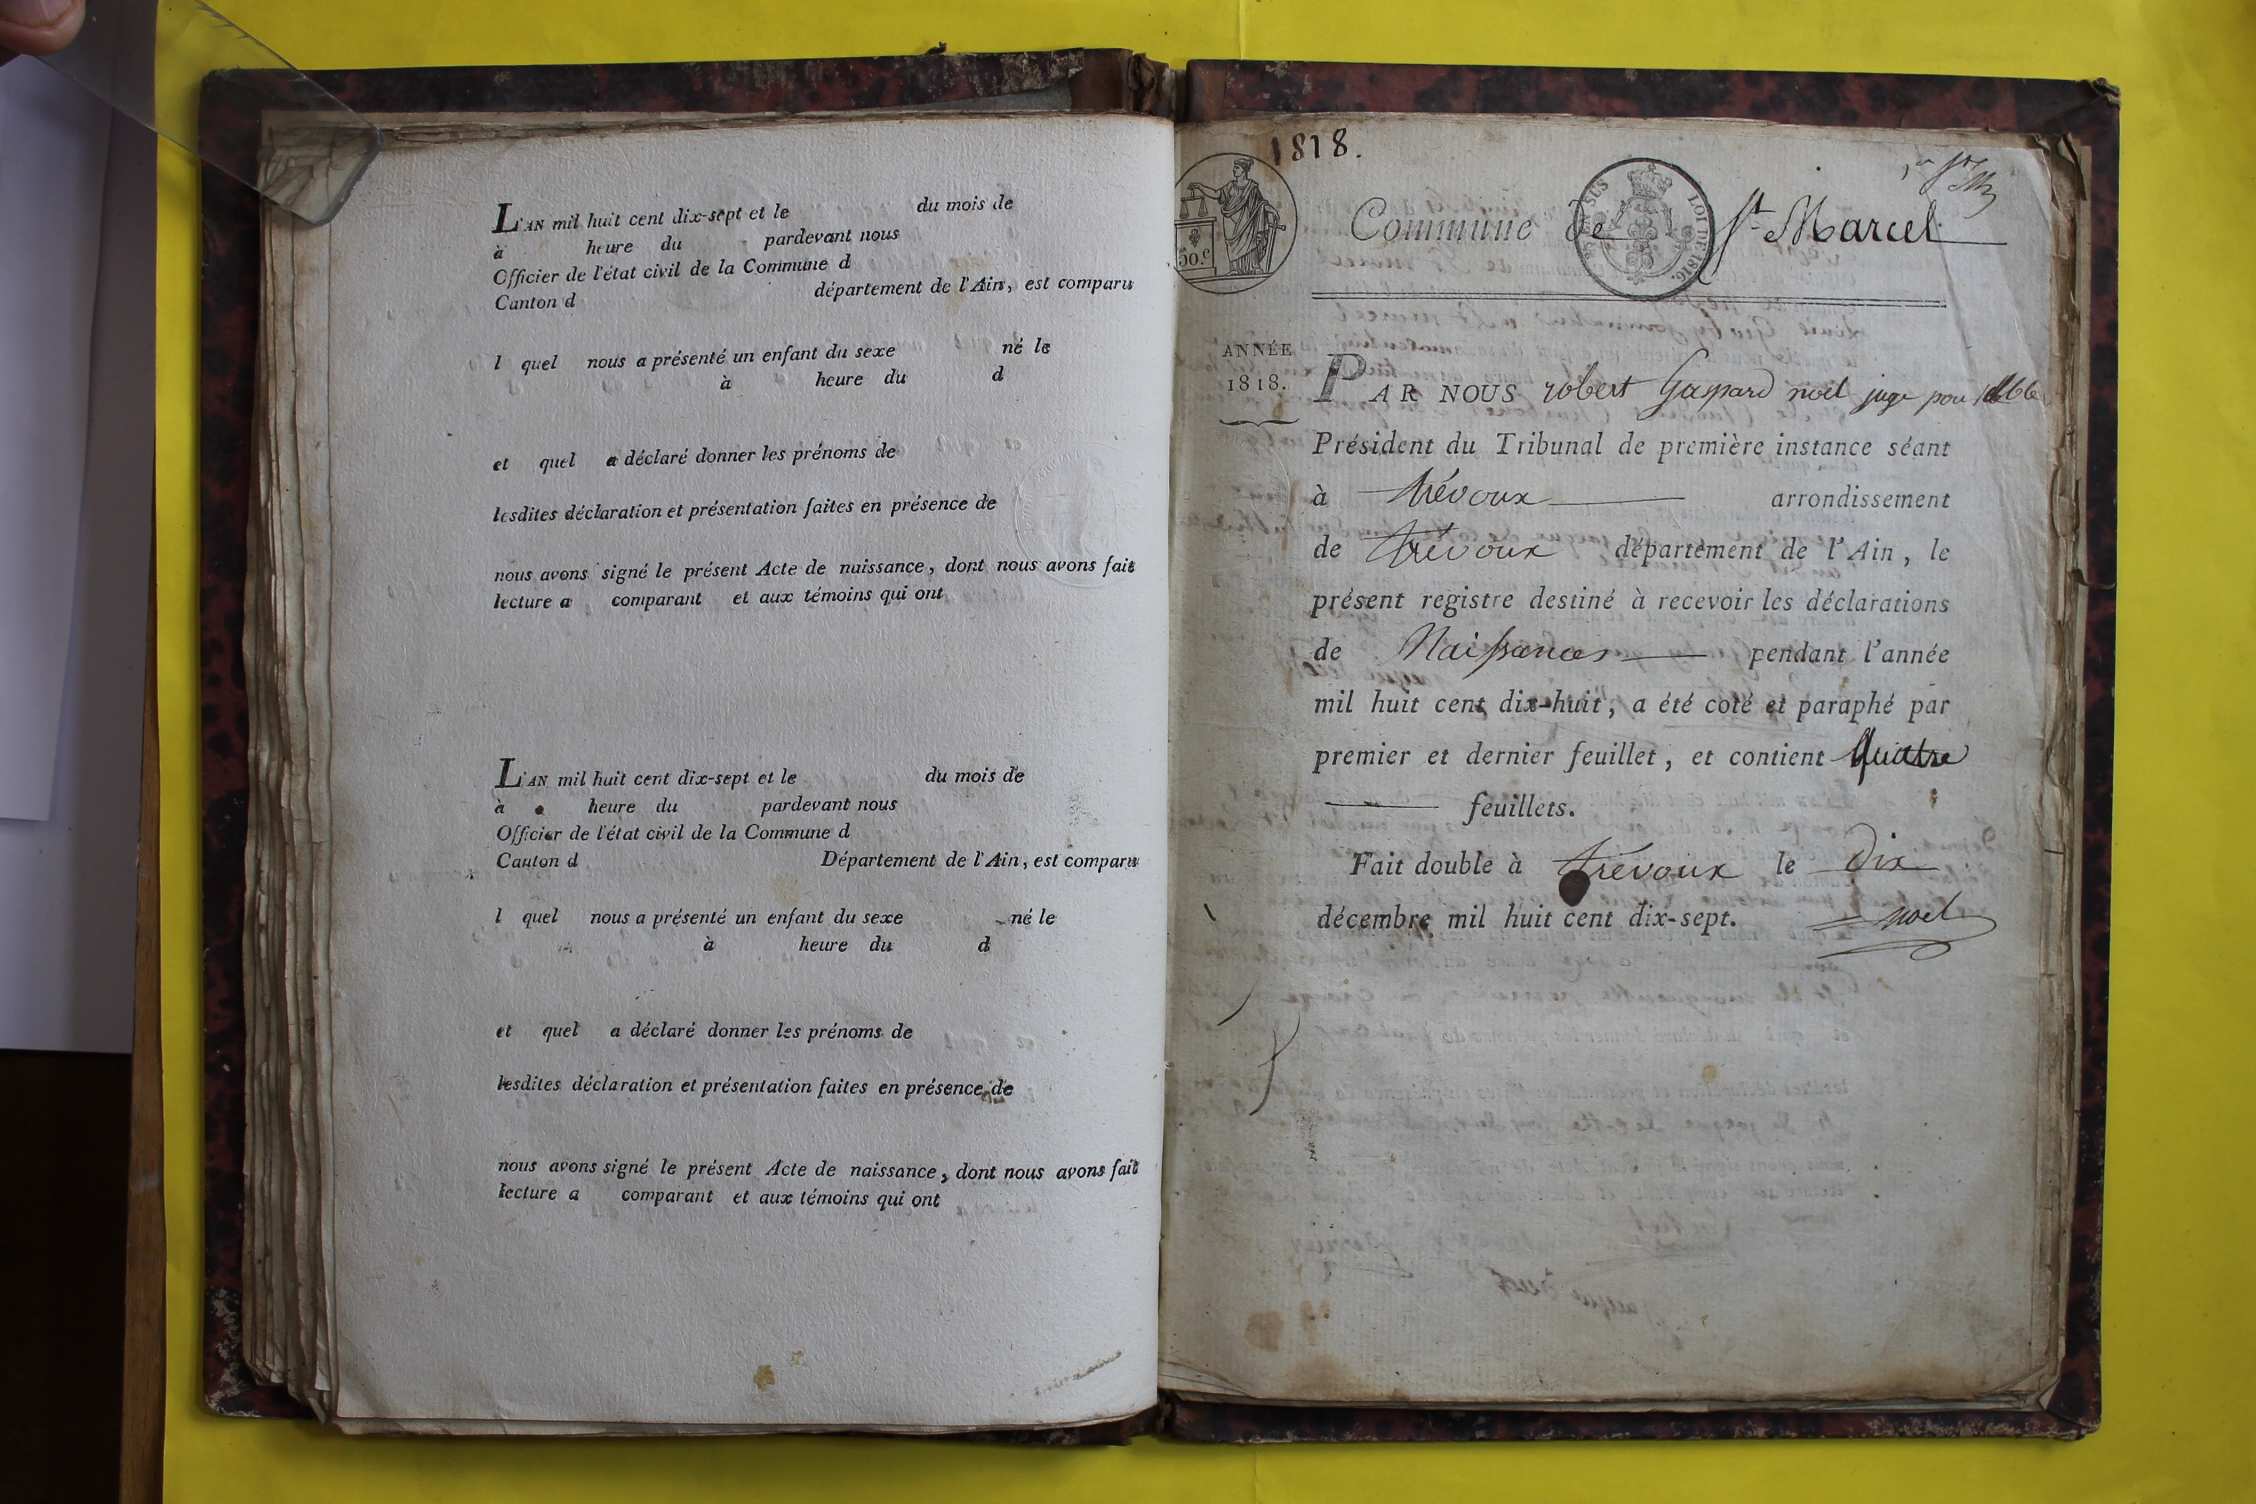 L'AN mil huit cent dix-sept et le du mois de
à heure du pardevant nous
Officier de l'état civil de la Commune d
Canton d département de l'Ain, est comparu
l quel nous a présenté un enfant du sexe né le
à heure du d
et quel a déclaré donner les prénoms de
lesdites déclaration et présentation faites en présence de
nous avons signé le présent Acte de naissance, dont nous avons fait
lecture a comparant et aux témoins qui ont
L'AN mil huit cent dix-sept et le du mois de
à heure du pardevant nous
Officier de l'état civil de la Commune d
Canton d Département de l'Ain, est comparu
l quel nous a présenté un enfant du sexe né le
à heure du d
et quel a déclaré donner les prénoms de
lesdites déclaration et présentation faites en présence de
nous avons signé le présent Acte de naissance, dont nous avons fait
lecture a comparant et aux témoins qui ont
1818.
50.c
EN SUS LOI DE 1816.
Commune de St Marcel
ANNÉE
1818.
PAR NOUS robert Gaspard noel juge pour
Président du Tribunal de première instance séant
à trévoux arrondissement
de trévoux département de l'Ain, le
présent registre destiné à recevoir les déclarations
de Naissances pendant l'année
mil huit cent dix-huit, a été coté et paraphé par
premier et dernier feuillet, et contient quatre
feuillets.
Fait double à trévoux le dix
décembre mil huit cent dix-sept. noel